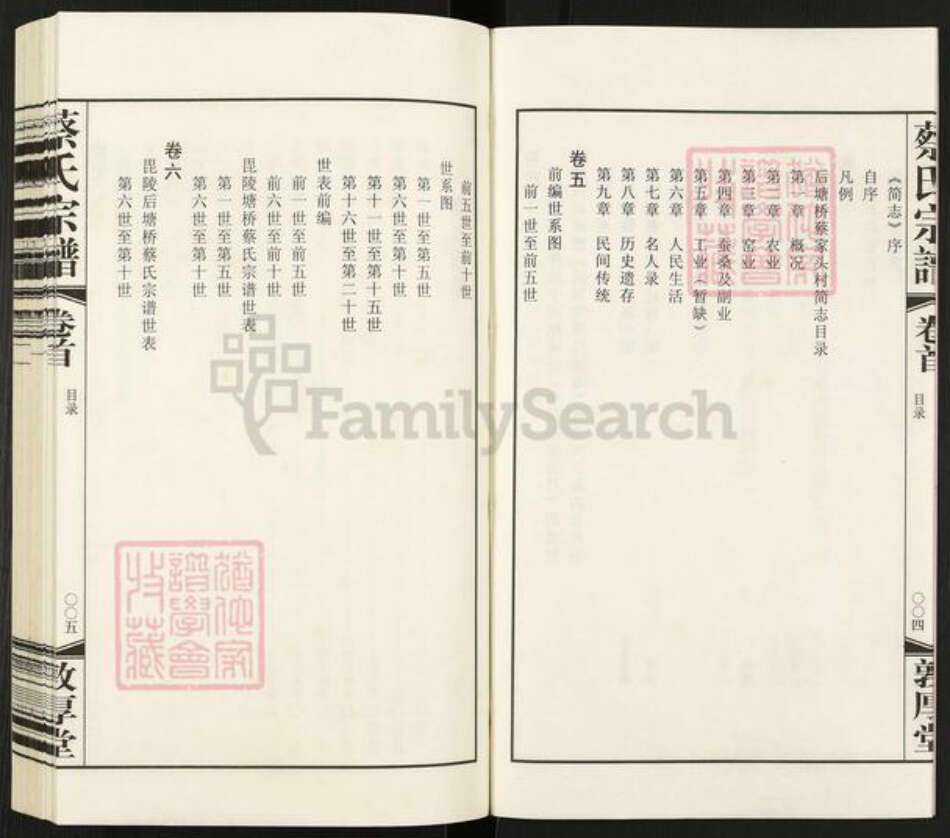 蔡氏宗譜
卷首
目录
〇〇四
敦厚堂
《简志》序
自序
凡例
后塘桥蔡家头村简志目录
第一章 概况
第二章 农业
第三章 窑业
第四章 蚕桑及副业
第五章 工业（暂缺）
第六章 人民生活
第七章 名人录
第八章 历史遗存
第九章 民间传统
卷五
前编世系图
前一世至前五世
前五世至前十世
世系图
第一世至第五世
第六世至第十世
第十一世至第十五世
第十六世至第二十世
世表前编
前一世至前五世
前六世至前十世
毘陵塘桥蔡氏宗谱世表
第一世至第五世
第六世至第十世
卷六
毘陵后塘桥蔡氏宗谱世表
第六世至第十世
蔡氏宗譜
卷首
目录
〇〇五
敦厚堂
FamilySearch
猶他家
譜學會
收藏